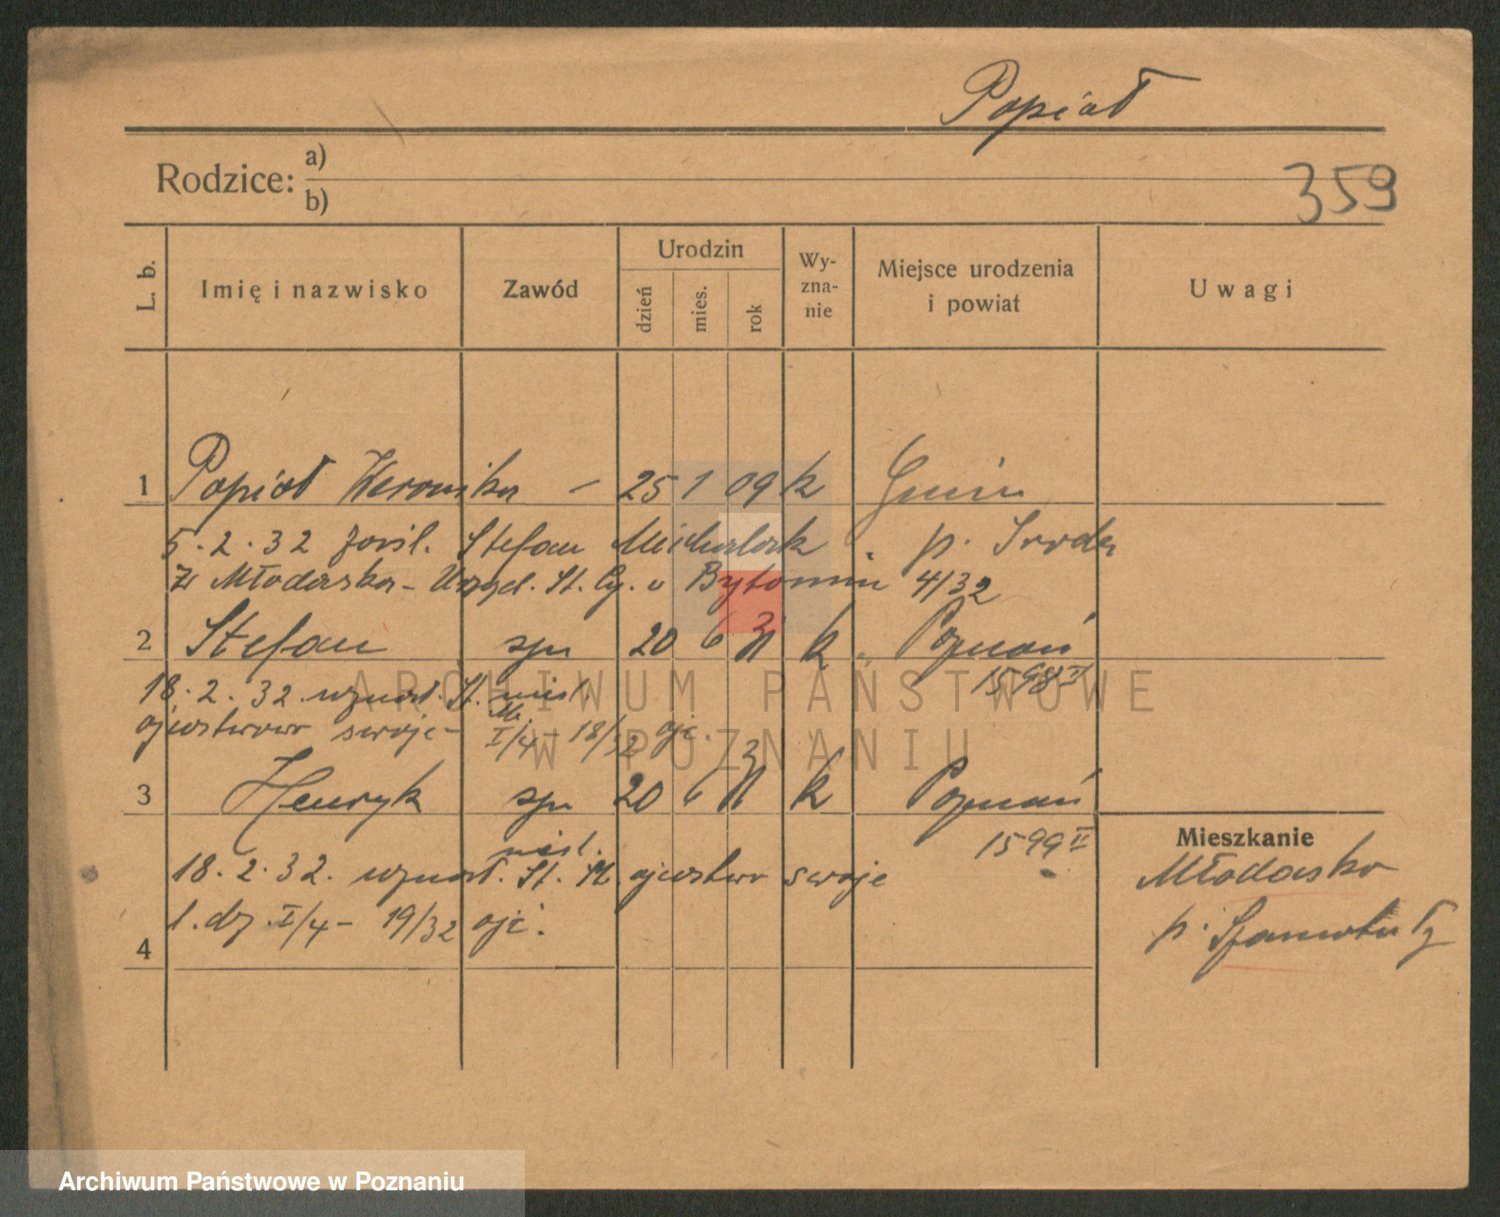 Popioł
Rodzice: a)
b)
359
L. b. Imię i nazwisko Zawód Urodzin dzień mies. rok Wy-zna-nie Miejsce urodzenia i powiat Uwagi
1 Popioł Weronika – 25 1 09 k
5.2.32 Stefan Michalak p. Środa
z Młodaska – Urzęd. St. Cy. w Bytominu 4/32
2 Stefan syn 20 6 31 k Poznań
18.2.32 uznał. St. 1598 II
ojcostwo swoje – I/4 – 18/32 ojc.
3 Henryk syn 20 6 31 k Poznań
1599 II
18.2.32. uznał. St. ojcostwo swoje
l. dz. I/4 – 19/32 ojc.
4
Mieszkanie
Młodasko
p. Szamotuły
ARCHIWUM PAŃSTWOWE
W POZNANIU
Archiwum Państwowe w Poznaniu